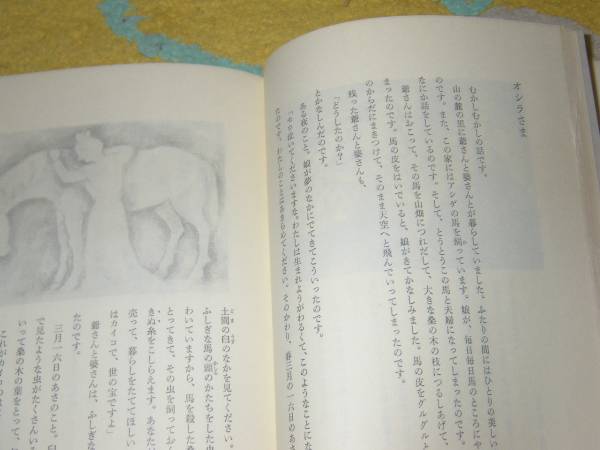 オシラさま
むかしむかしの話です。
山の麓の里に爺さんと婆さんとが暮らしていました。ふたりの間にはひとりの美しい
のです。また、この家にはアシゲの馬を飼っています。娘が、毎日毎日馬のところにや
なにか話をしているのです。そして、とうとうこの馬と夫婦になってしまったのです。
爺さんはおこって、その馬を山畑につれだして、大きな桑の木の枝につるしあげて、
まったのです。馬の皮をはいでいると、娘がきてかなしみました。馬の皮をグルグルと
のからだにまきつけて、そのまま天空へと飛んでいってしまったのです。
残った爺さんと婆さんも、
「どうしたのか？」
とかなしんだのです。
ある夜のこと、娘が夢のなかにでてきてこういったのです。
「もう泣いてくださいますな。わたしは生まれようがわるくて、このようなことにな
たのです。わたしのことはあきらめてください。そのかわり、春三月の一六日のあさ
土間の臼のなかを見てください。
ふしぎな馬の頭のかたちをした虫
わいていますから、馬を殺した桑
とってきて、その虫を飼っておく
きぬ糸をこしらえます。あなた
売って、暮らしをたててほしい
はカイコで、世の宝ですよ」
爺さんと婆さんは、ふしぎな
たのです。
三月一六日のあさのこと。臼
で見たような虫がたくさんいる
いって桑の木の葉をとって、